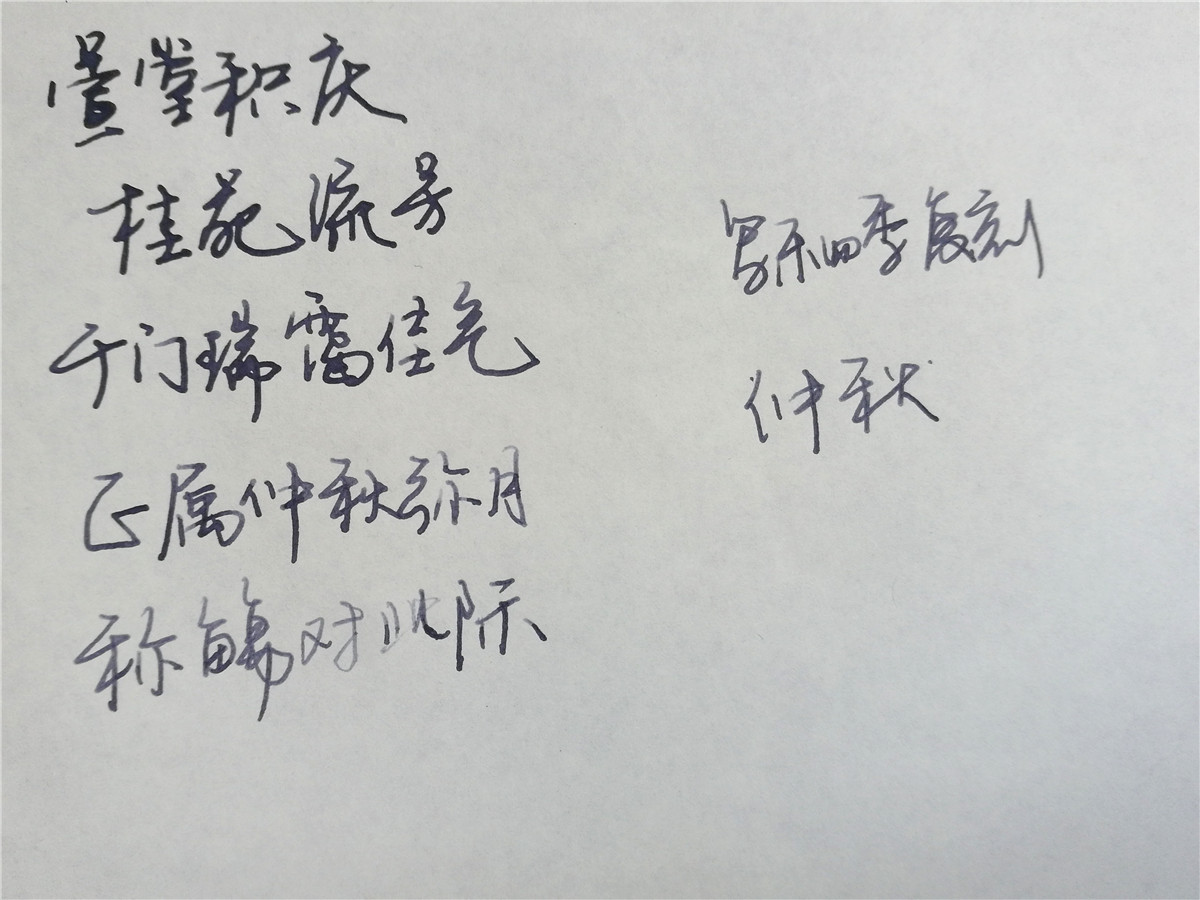 萱堂积庆
桂苑流芳
于门瑞霭佳气
正属仲秋弥月
称觞对此际
写乐四季复刻
仲秋